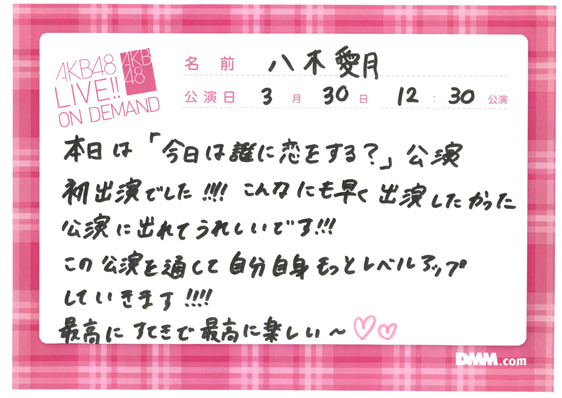 AKB48
LIVE!!
ON DEMAND
AKB
48
名前 八木愛月
公演日 3月30日 12:30公演
本日は「今日は誰に恋をする?」公演
初出演でした!!!! こんなにも早く出演したかった
公演に出れてうれしいです!!!
この公演を通して自分自身もっとレベルアップ
していきます!!!!
最高にすてきで最高に楽しい〜♡♡
DMM.com